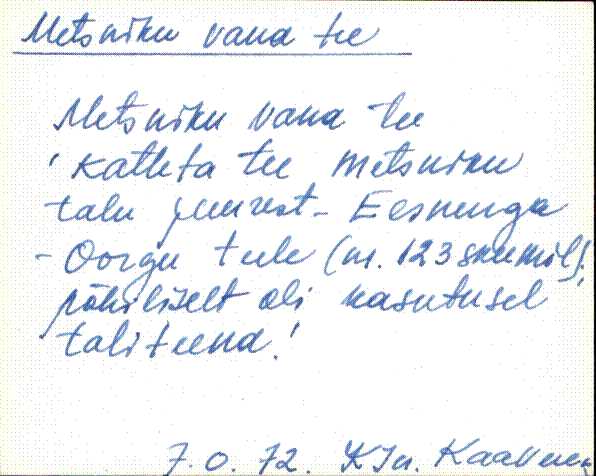 Metsniku vana tee
Metsniku vana tee
'katteta tee metsniku
talu juurest - Eesnurga
- Oorgu teele (nr. 123 skeemil);
põhiliselt oli kasutusel
taliteena!
7. 0. 72. K